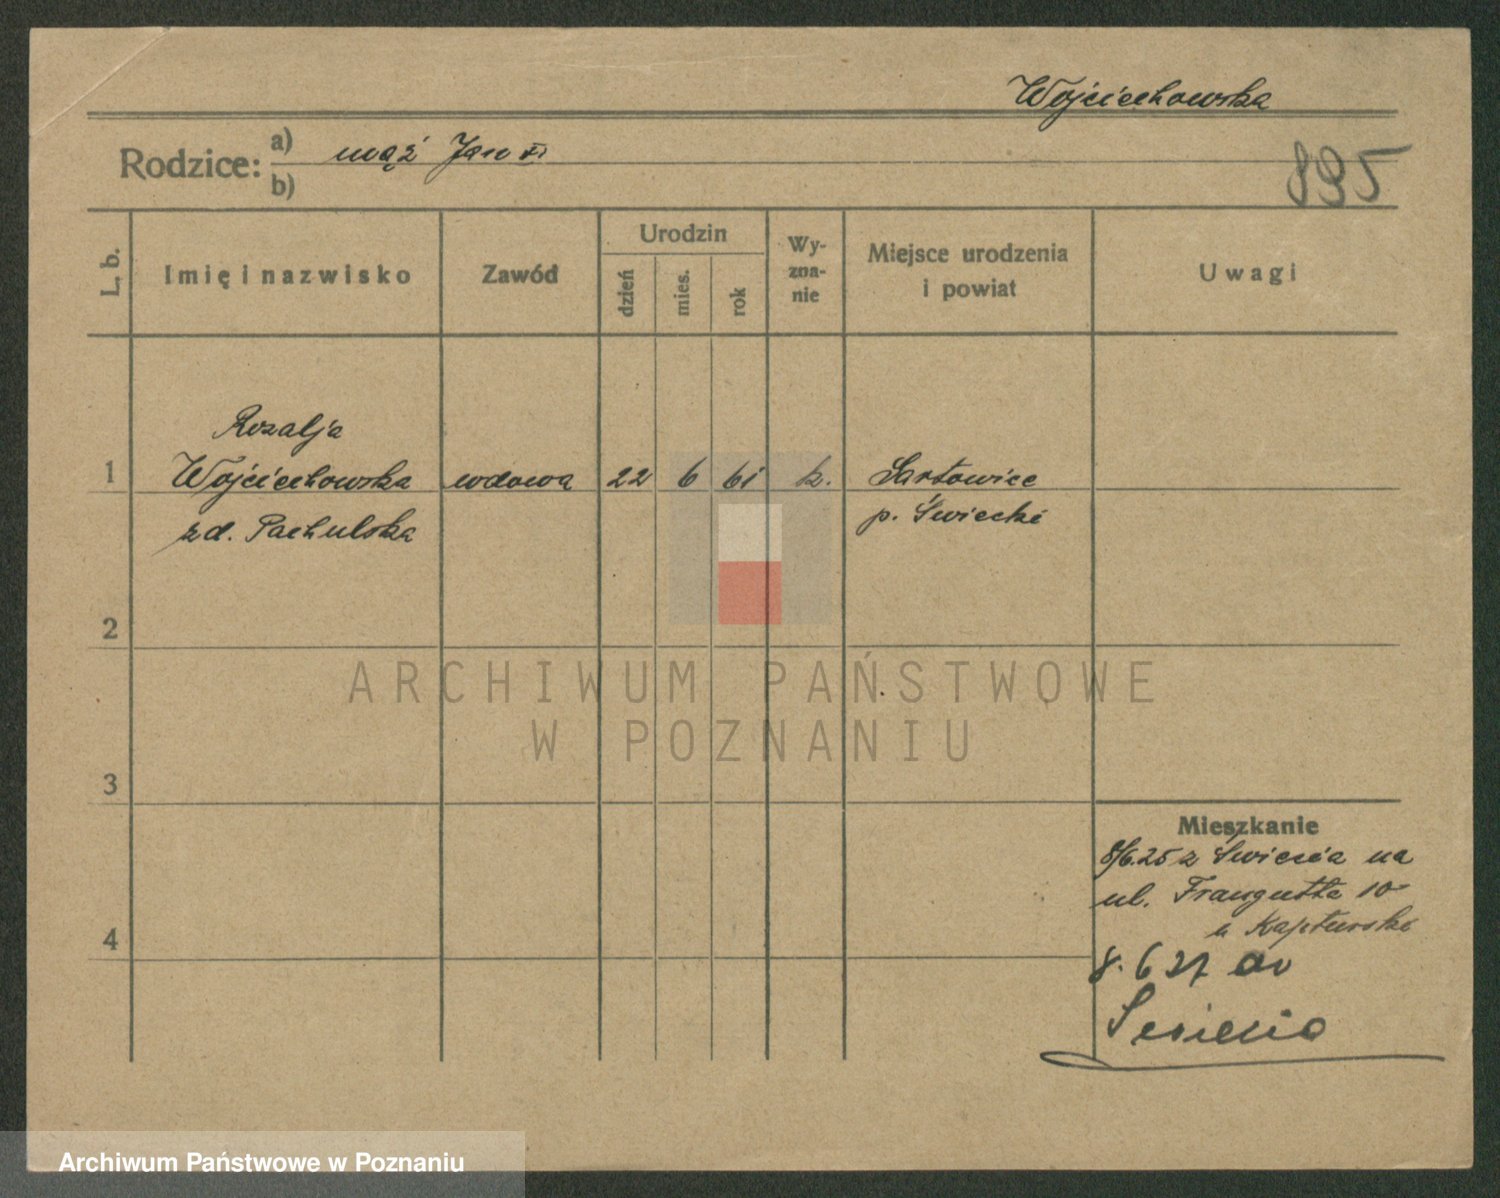 Wojciechowska
895
Rodzice: a) mąż Jan
b)
L. b.
Imię i nazwisko
Zawód
Urodzin
dzień
mies.
rok
Wy-
zna-
nie
Miejsce urodzenia
i powiat
Uwagi
Rozalja
1 Wojciechowska wdowa 22 6 61 k. Sartowice
zd. Pachulska p. Świecki
2
3
4
ARCHIWUM PAŃSTWOWE
W POZNANIU
Mieszkanie
8/6.25 z Świecia na
ul. Traugutta 10
u Kapturski
8. 6 27 do
Archiwum Państwowe w Poznaniu